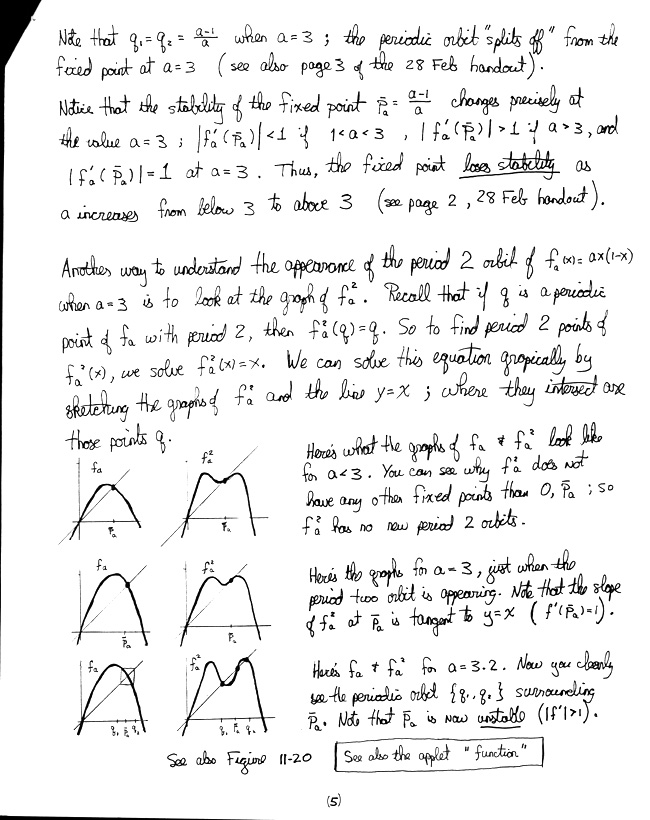 Note that q₁ = q₂ = a-1/a when a = 3 ; the periodic orbit "splits off" from the
fixed point at a = 3 (see also page 3 of the 28 Feb handout).
Notice that the stability of the fixed point p̄ₐ = a-1/a changes precisely at
the value a = 3 ; |fₐ'(p̄ₐ)| < 1 if 1 < a < 3 , |fₐ'(p̄ₐ)| > 1 if a > 3, and
|fₐ'(p̄ₐ)| = 1 at a = 3. Thus, the fixed point loses stability as
a increases from below 3 to above 3 (see page 2 , 28 Feb handout).
Another way to understand the appearance of the period 2 orbit of fₐ(x) = ax(1-x)
when a = 3 is to look at the graph of fₐ². Recall that if q is a periodic
point of fₐ with period 2, then fₐ²(q) = q. So to find period 2 points of
fₐ²(x), we solve fₐ²(x) = x. We can solve this equation gropically by
sketching the graphs of fₐ² and the line y = x ; where they intersect are
those points q.
fₐ
fₐ²
p̄ₐ
p̄ₐ
Here's what the graphs of fₐ & fₐ² look like
for a < 3. You can see why fₐ² does not
have any other fixed points than 0, p̄ₐ ; so
fₐ² has no new period 2 orbits.
fₐ
fₐ²
p̄ₐ
p̄ₐ
Here's the graphs for a = 3, just when the
period two orbit is appearing. Note that the slope
of fₐ² at p̄ₐ is tangent to y = x ( f'(p̄ₐ) = 1 ).
fₐ
fₐ²
q₁ p̄ₐ q₂
q₁ p̄ₐ q₂
Here's fₐ & fₐ² for a = 3.2. Now you clearly
see the periodic orbit {q₁, q₂} surrounding
p̄ₐ. Note that p̄ₐ is now unstable (|f'| > 1).
See also Figure 11-20
See also the applet "function"
(5)